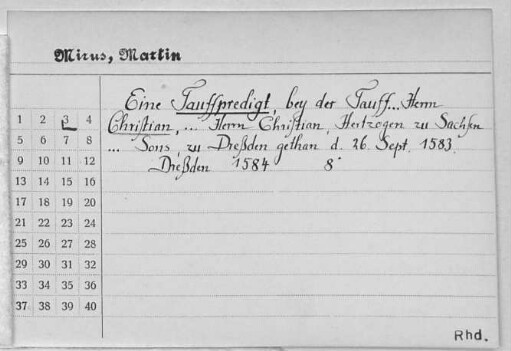 Mirus, Martin
Eine Tauffpredigt, bey der Tauff... Herrn
Christian, ... Herrn Christian, Hertzogen zu Sachsen
... Sons, zu Dreßden gethan d. 26. Sept. 1583.
Dreßden 1584 8°
1 2 3 4
5 6 7 8
9 10 11 12
13 14 15 16
17 18 19 20
21 22 23 24
25 26 27 28
29 30 31 32
33 34 35 36
37 38 39 40
Rhd.